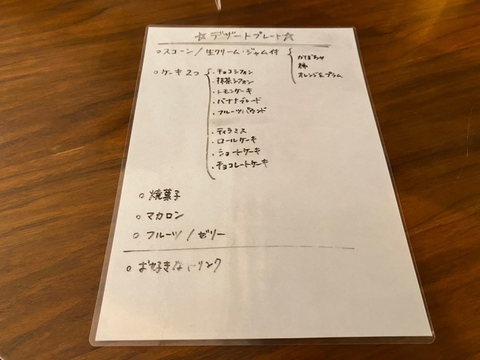 ☆デザートプレート☆
○スコーン/生クリーム・ジャム付
かぼちゃ
柿
オレンジ&プラム
○ケーキ2つ
・チョコシフォン
・抹茶シフォン
・レモンケーキ
・バナナブレード
・フルーツパウンド
・ティラミス
・ロールケーキ
・ショートケーキ
・チョコレートケーキ
○焼菓子
○マカロン
○フルーツ/ゼリー
○お好きなドリンク